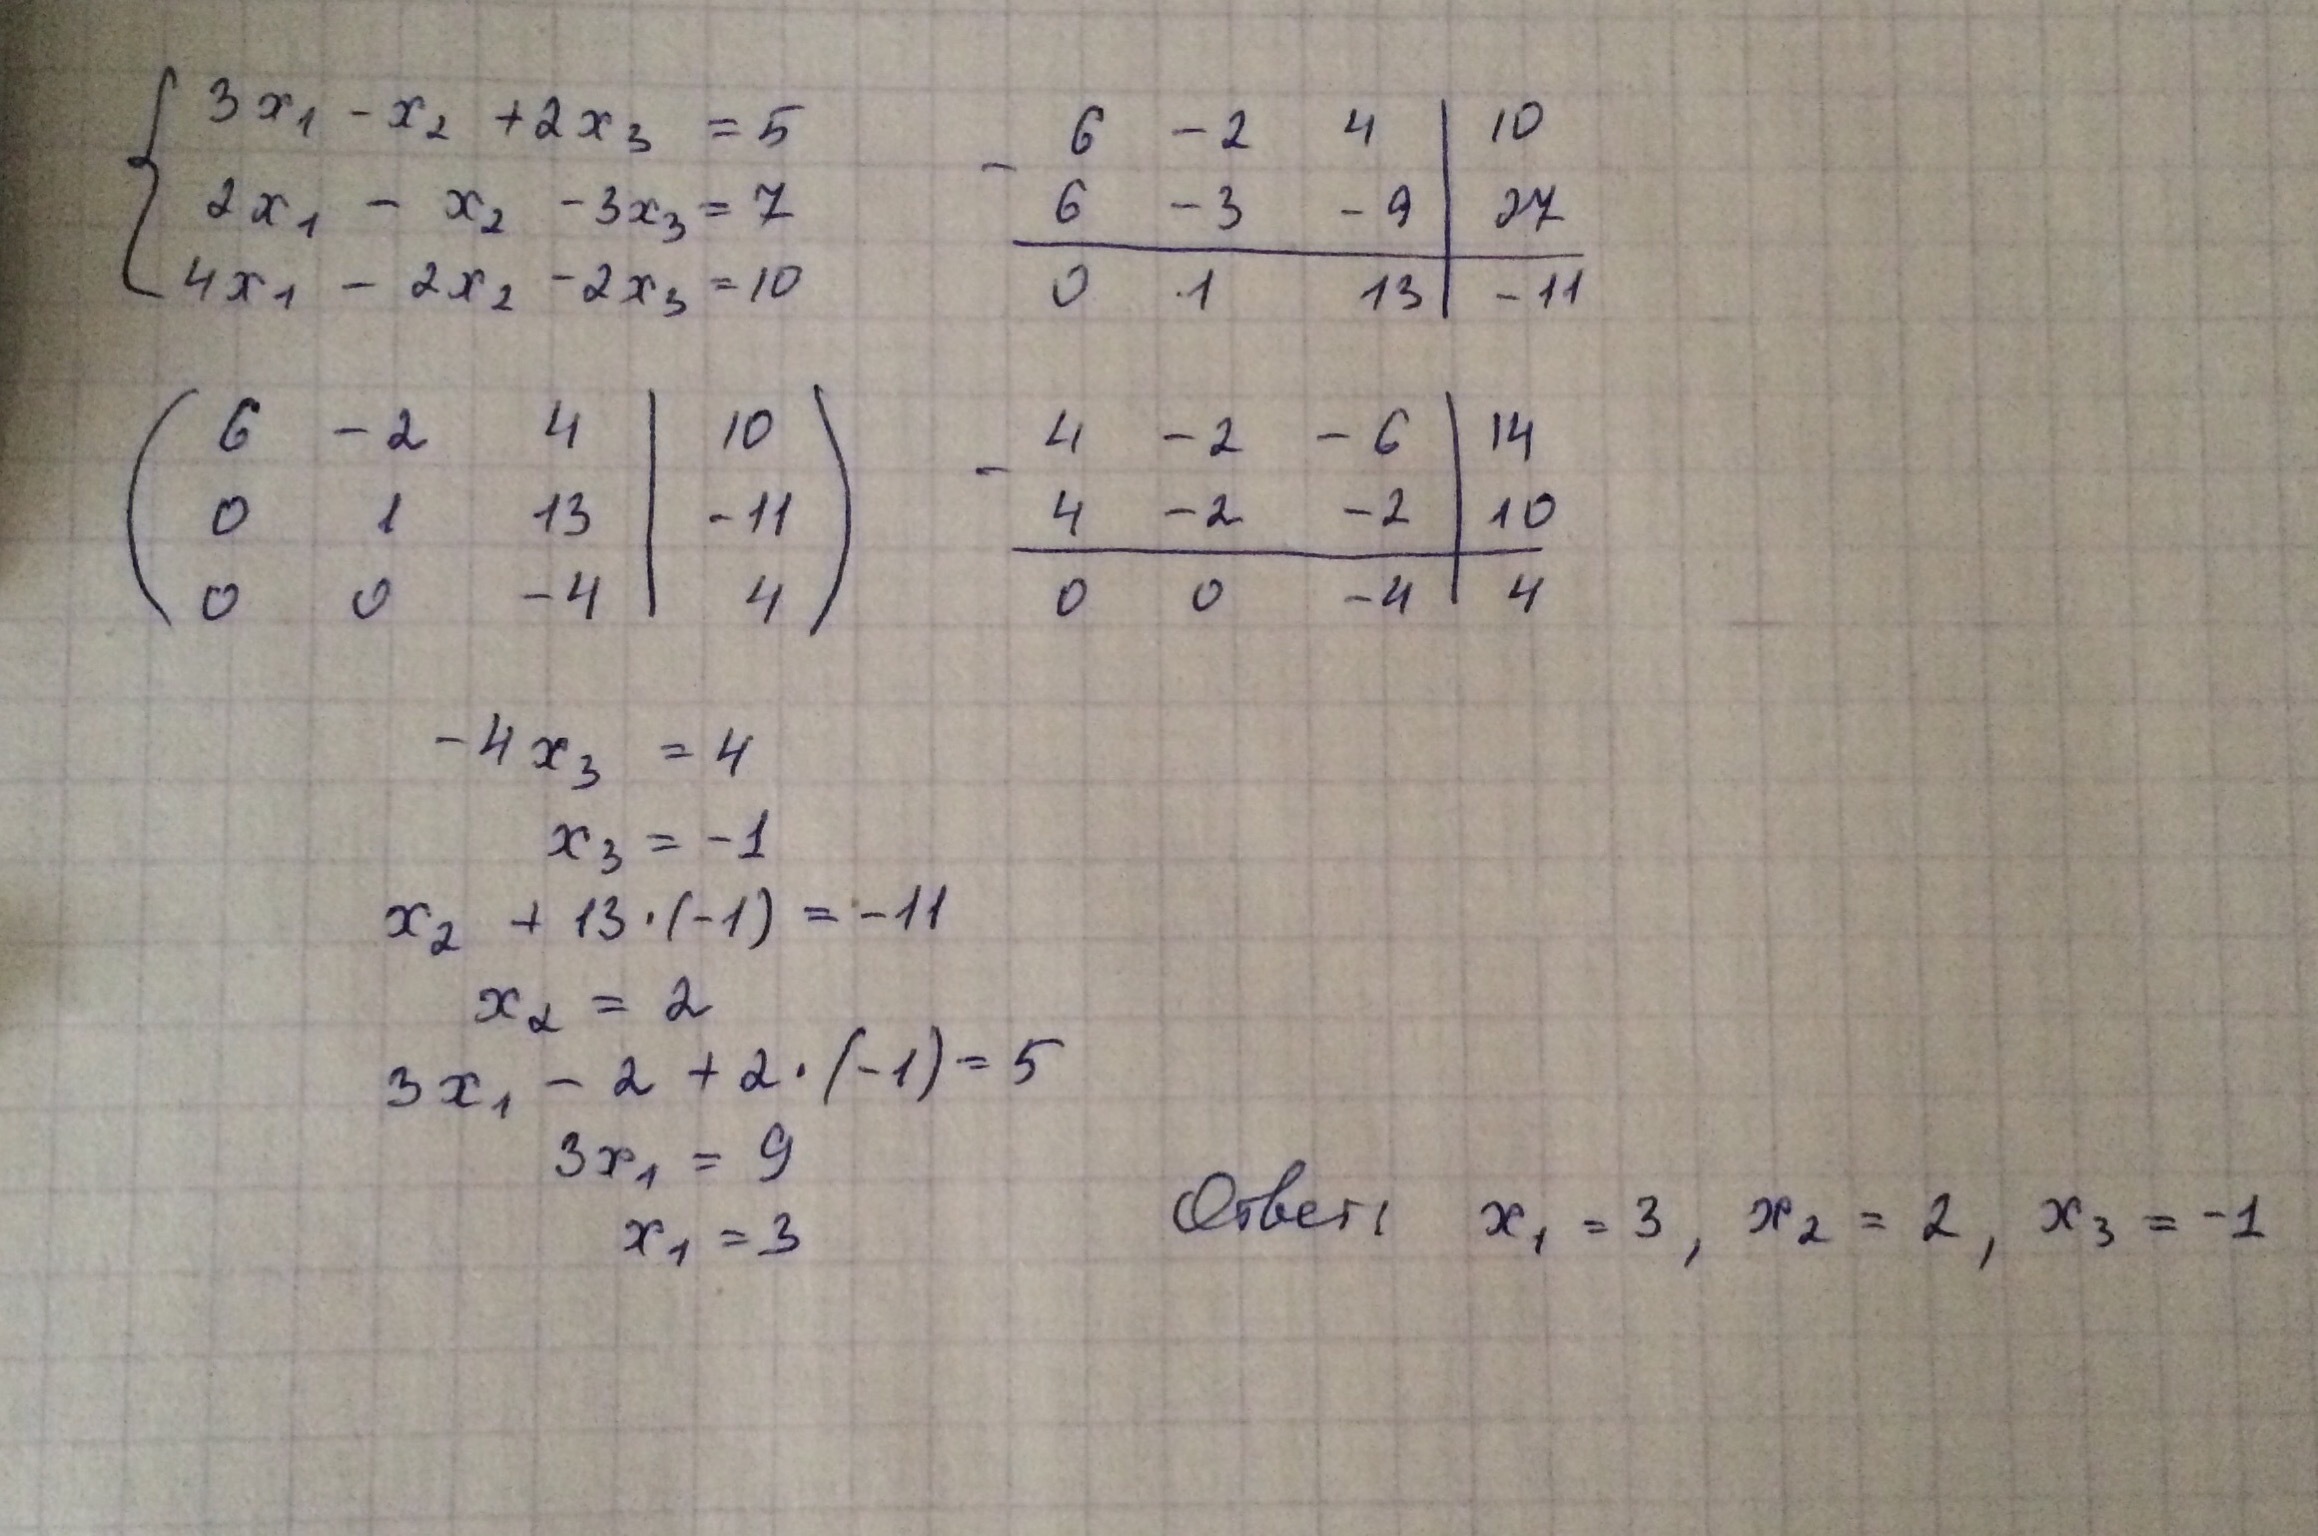 3x₁ - x₂ + 2x₃ = 5
2x₁ - x₂ - 3x₃ = 7
4x₁ - 2x₂ - 2x₃ = 10
- 6 -2 4 | 10
6 -3 -9 | 27
0 1 13 | -11
( 6 -2 4 | 10 )
0 1 13 | -11
0 0 -4 | 4
- 4 -2 -6 | 14
4 -2 -2 | 10
0 0 -4 | 4
-4x₃ = 4
x₃ = -1
x₂ + 13·(-1) = -11
x₂ = 2
3x₁ - 2 + 2·(-1) = 5
3x₁ = 9
x₁ = 3
Ответ: x₁ = 3, x₂ = 2, x₃ = -1